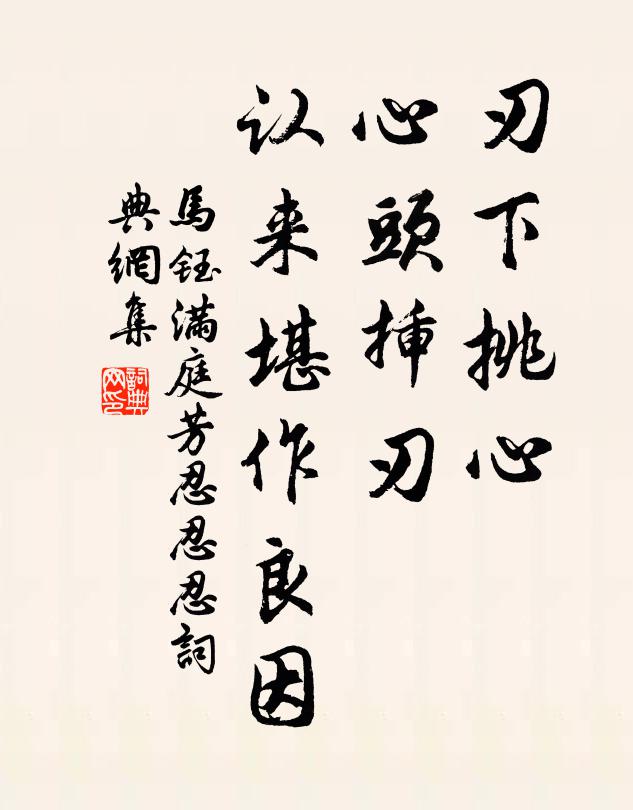 刃下挑心
心頭挿刃
认来堪作良因
馬鈺滿庭芳忍忍忍詞
典網集
詞典网印